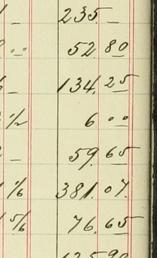 235 –
52.80
134.25
6.00
59.65
1% 381.07.
5/6 76.65